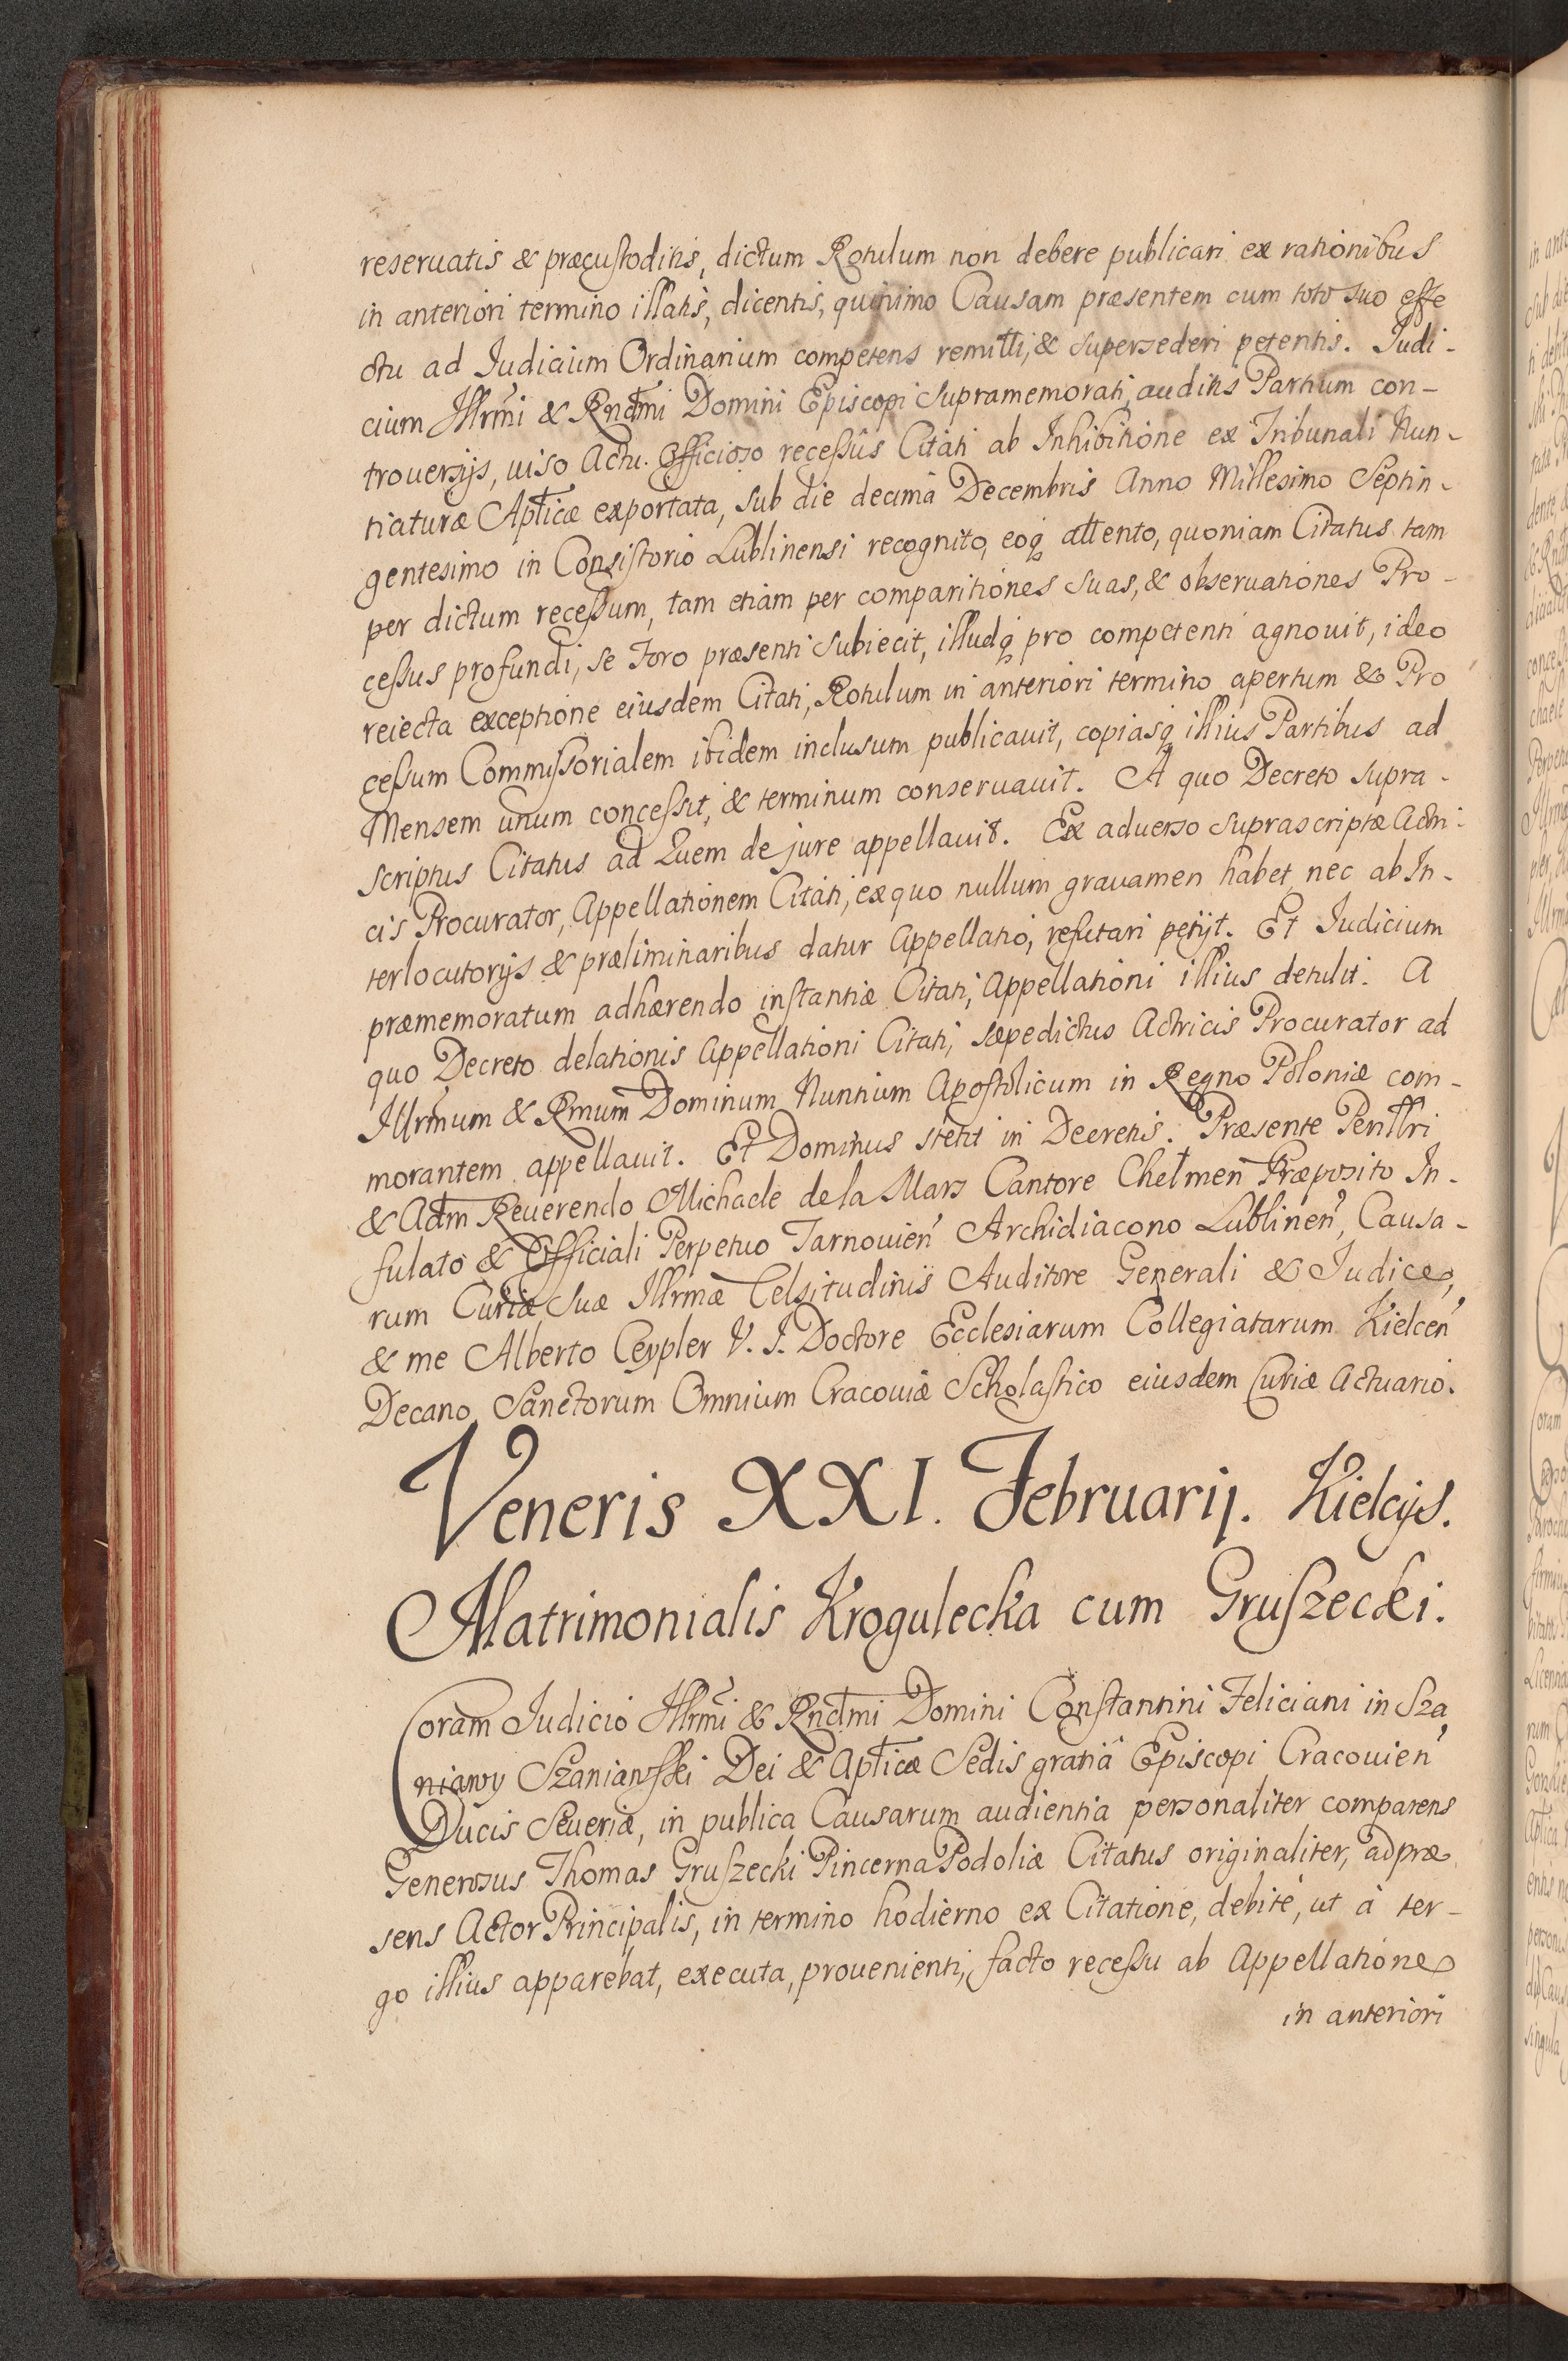 reseruatis & præcustoditis, dictum Rotulum non debere publicari ex rationibus
in anteriori termino illatis, dicentis, quinimo Causam præsentem cum toto suo effe
ctu ad Iudicium Ordinarium competens remitti, & supersederi petentis. Iudi-
cium Illrmi & Rndmi Domini Episcopi supramemorati, auditis Partium con-
trouersijs, uiso Actu Officioso recessûs Citati ab Inhibitione ex Tribunali Nun-
tiaturæ Aplicæ exportata, sub die decima Decembris Anno Millesimo Septin-
gentesimo in Consistorio Lublinensi recognito, eoq attento, quoniam Citatus tam
per dictum recessum, tam etiam per comparitiones suas, & obseruationes Pro-
cessus profundi, se Foro præsenti subiecit, illudq pro competenti agnouit, ideo
reiecta exceptione eiusdem Citati, Rotulum in anteriori termino apertum & Pro
cessum Commissorialem ibidem inclusum publicauit, copiasq illius Partibus ad
Mensem unum concessit, & terminum conseruauit. A quo Decreto supra-
scriptus Citatus ad Quem de jure appellauit. Ex aduerso suprascriptæ Actri-
cis Procurator, Appellationem Citati, ex quo nullum grauamen habet, nec ab In-
terlocutorijs & præliminaribus datur Appellatio, refutari petijt. Et Iudicium
præmemoratum adhærendo instantiæ Citati, Appellationi illius detulit. A
quo Decreto delationis Appellationi Citati, sæpedictus Actricis Procurator ad
Illrmum & Rmum Dominum Nuntium Apostolicum in Regno Poloniæ com-
morantem appellauit. Et Dominus stetit in Decretis. Præsente Perillri
& Adm Reuerendo Michaele de la Mars Cantore Chelmen Præposito In-
fulato & Officiali Perpetuo Tarnouien Archidiacono Lublinen, Causa-
rum Curiæ Suæ Illrmæ Celsitudinis Auditore Generali & Iudice,
& me Alberto Ceypler V. I. Doctore Ecclesiarum Collegiatarum Kielcen
Decano, Sanctorum Omnium Cracouiæ Scholastico eiusdem Curiæ Actuario.
Veneris XXI. Februarij. Kielcijs.
Matrimonialis Krogulecka cum Gruszecki.
Coram Iudicio Illrmi & Rndmi Domini Constantini Feliciani in Sza
niawy Szaniawski Dei & Aplicæ Sedis gratiâ Episcopi Cracouien
Ducis Seueriæ, in publica Causarum audientia personaliter comparens
Generosus Thomas Gruszecki Pincerna Podoliæ Citatus originaliter, ad præ
sens Actor Principalis, in termino hodierno ex Citatione, debitè, ut à ter-
go illius apparebat, executa, prouenienti, facto recessu ab Appellatione
in anteriori